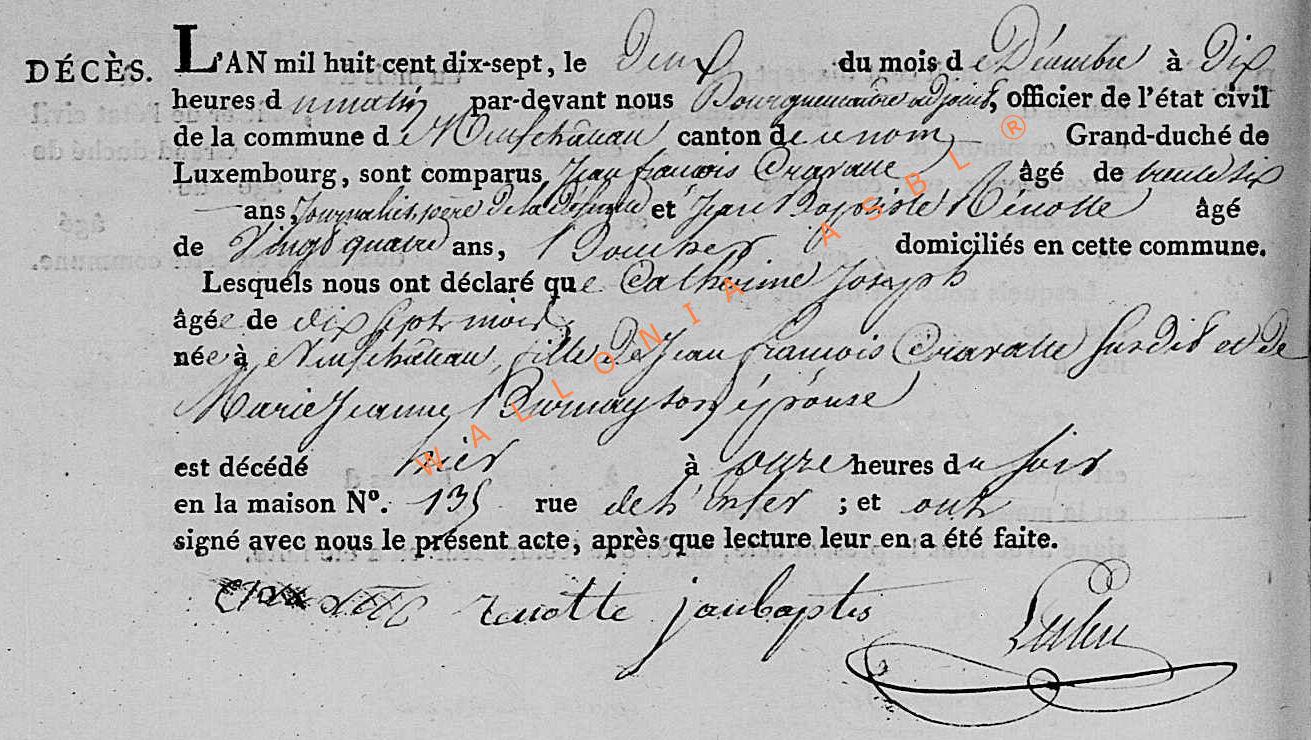 DÉCÈS.
L'AN mil huit cent dix-sept, le Deux du mois de Décembre à Dix
heures du matin par-devant nous Bourguemaitre adjoint, officier de l'état civil
de la commune de Neufchâteau canton de ce nom Grand-duché de
Luxembourg, sont comparus Jean francois âgé de trente six
ans, Journalier, père de la défunte et Jean Baptiste Renotte âgé
de Vingt quatre ans, Boucher domiciliés en cette commune.
Lesquels nous ont déclaré que Catherine Joseph
âgée de dix sept mois
née à Neufchâteau, fille de Jean francois susdit et de
Marie Jeanne son épouse
est décédé hier à onze heures du soir
en la maison N°. 135 rue de l'Enfer ; et ont
signé avec nous le présent acte, après que lecture leur en a été faite.
renotte janbaptis
WALLONIA ASBL ®